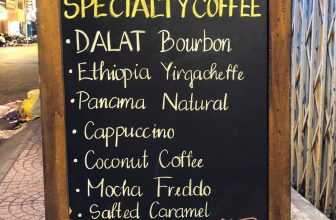 SPECIALTY COFFEE
• DALAT Bourbon
• Ethiopia Yirgacheffe
• Panama Natural
• Cappuccino
• Coconut Coffee
• Mocha Freddo
• Salted Caramel